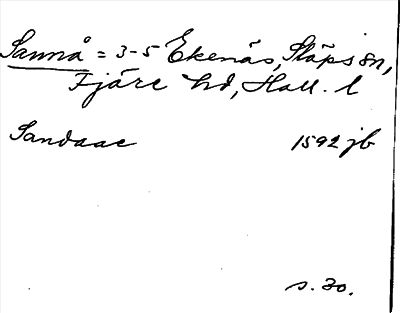 Sannå = 3-5 Ekenäs, Släps sn,
Fjäre hd, Hall. l
Sandaae 1592 jb
s. 30.